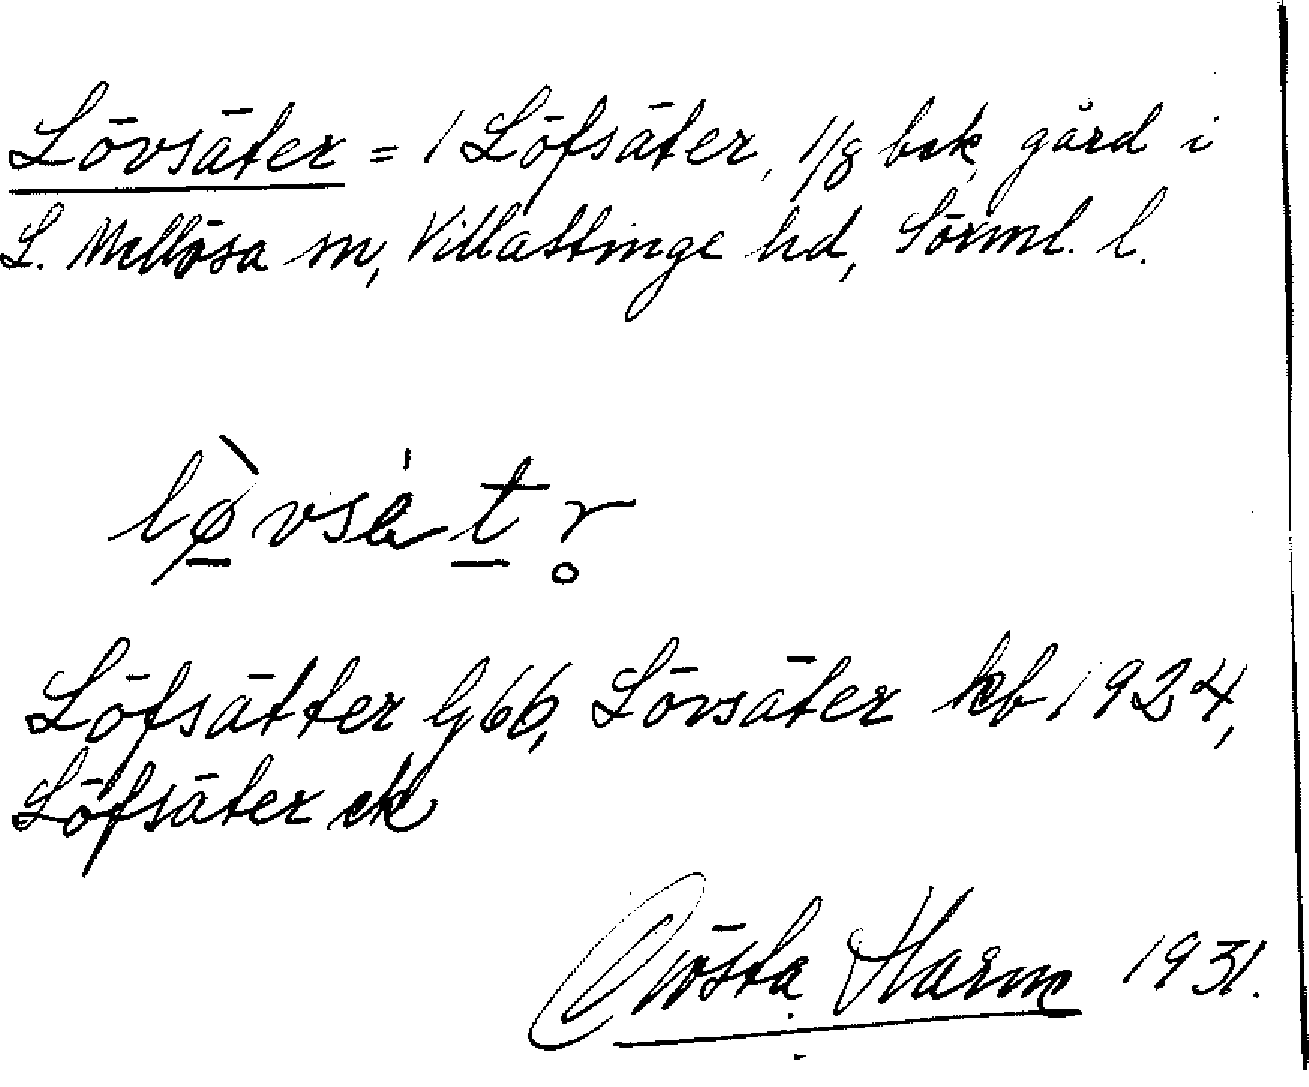 Lövsäter = 1 Löfsäter, 1/8 bsk, gård i
L. Mellösa sn, Villåttinge hd, Sörml. l.
lø̀vsèt r̥
Löfsätter G66, Lövsäter kb 1924,
Löfsäter ek
Gösta Harm 1931.